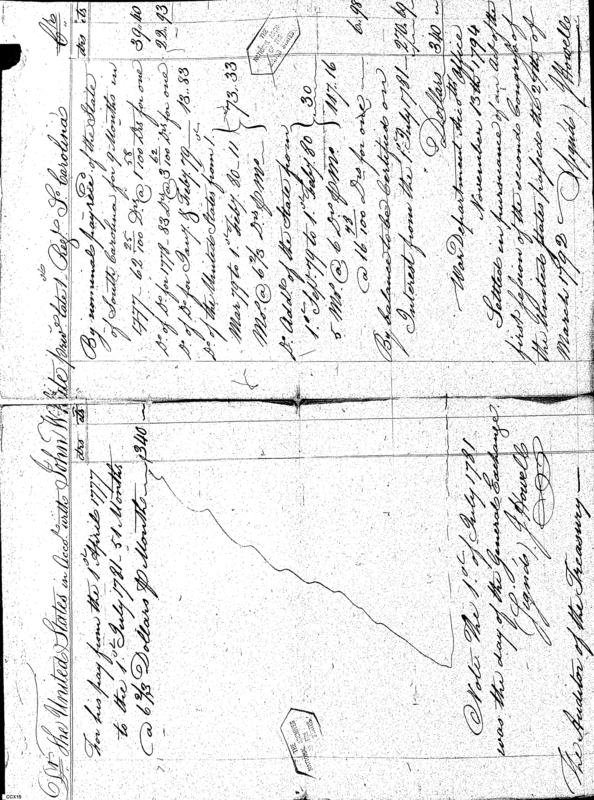 Dr. The United States in Accot. with John White priv. late 1st Regt. S. Carolina Cr.
drs cts
For his pay from the 1st April 1777
to the 1st July 1781 - 51 Months
@ 6 2/3 Dollars P Month 340
Note The 1st of July 1781
was the day of the General Exchange
Signed J Howell
The Auditor of the Treasury
drs cts
By nominal pay rec'd of the State
of South Carolina for 9 Months in
1777 - 62 25/100 Drs @ 100 Drs for one 39.40
Do of Do for 1778 - 83 Drs @ 3 62/100 Drs for one 22.93
Do of Do for Jany. & Feby. 79 13.33
Do of the United States from 1st
Mar 79 to 1st Feby. 80 - 11 } 73.33
Mos @ 6 2/3 Drs P Mo
Do Addl. of the State from
1st Sept. 79 to 1st Feby. 80 } 30
5 Mos @ 6 Drs P Mo. } 107.16
@ 16 100 Drs for one 6.98
By balance to be Certified on
Interest from the 1st July 1781
Dollars 340
War Department Accots Office
November 13th 1794
Settled in pursuance of an Act of the
first session of the second Congress of
the United States passed the 27th of
March 1792
Signed J Howell
CCX15